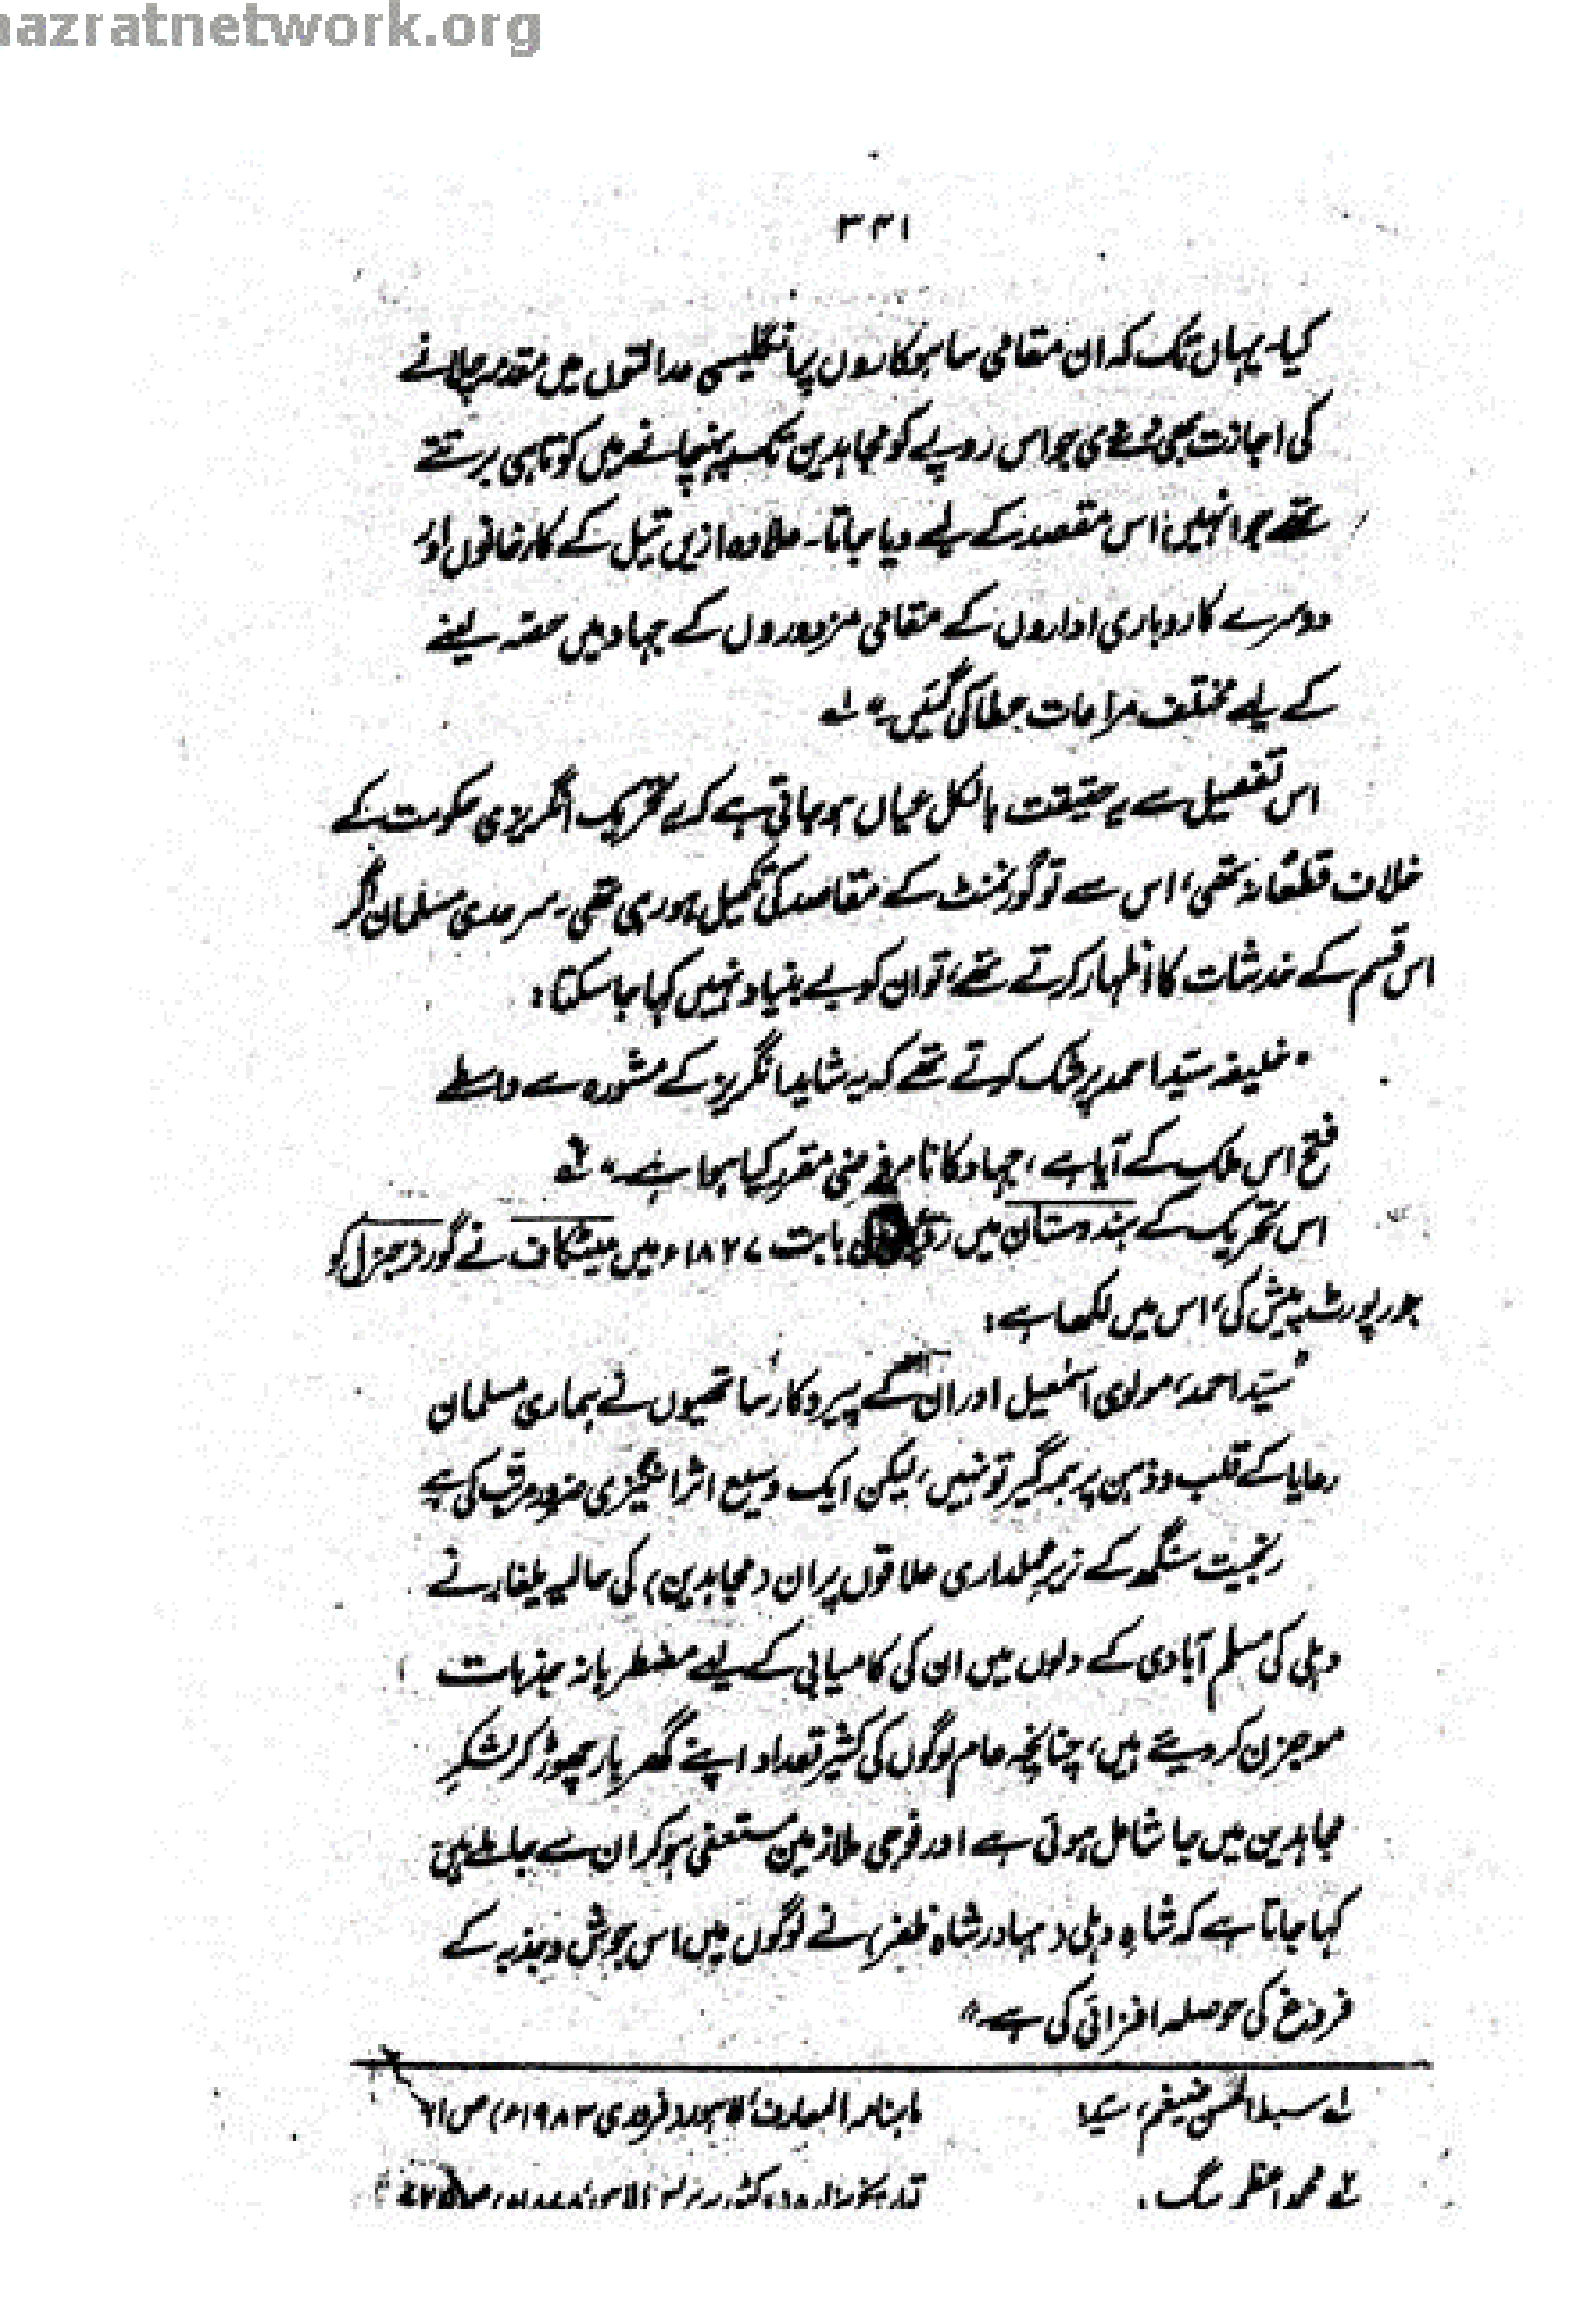 hazratnetwork.org
۳۴۱
کیا۔ یہاں تک کہ ان مقامی ساہوکاروں پر انگلیسی عدالتوں میں مقدمہ چلانے
کی اجازت بھی دے دی جو اس روپے کو مجاہدین تک پہنچانے میں کوتاہی برتتے
تھے جو انہیں اس مقصد کے لیے دیا جاتا۔ علاوہ ازیں تیل کے کارخانوں اور
دوسرے کاروباری اداروں کے مقامی مزدوروں کے جہاد میں حصّہ لینے
کے لیے مختلف مراعات عطا کی گئیں۔" ؎۱
اس تفصیل سے یہ حقیقت بالکل عیاں ہو جاتی ہے کہ یہ تحریک انگریزی حکومت کے
خلاف قطعًا نہ تھی، اس سے تو گورنمنٹ کے مقاصد کی تکمیل ہو رہی تھی۔ سرحدی مسلمان اگر
اس قسم کے خدشات کا اظہار کرتے تھے، تو ان کو بے بنیاد نہیں کہا جا سکتا:
"خلیفہ سیّد احمد پر شک کرتے تھے کہ یہ شاید انگریز کے مشورہ سے واسطے
فتح اس ملک کے آیا ہے، جہاد کا نام فرضی مقرر کیا ہوا ہے۔" ؎۲
اس تحریک کے ہندوستان میں بابت ۱۸۲۷ء میں میٹکاف نے گورنر جنرل کو
جو رپورٹ پیش کی، اس میں لکھا ہے:
"سیّد احمد، مولوی اسمٰعیل اور ان کے پیروکار ساتھیوں نے ہماری مسلمان
رعایا کے قلب و ذہن پر ہمہ گیر تو نہیں، لیکن ایک وسیع اثر انگیزی ضرور مرتب کی ہے
رنجیت سنگھ کے زیر عملداری علاقوں پر ان (مجاہدین) کی حالیہ یلغار نے
دہلی کی مسلم آبادی کے دلوں میں ان کی کامیابی کے لیے مضطربانہ جذبات
موجزن کر دیے ہیں، چنانچہ عام لوگوں کی کثیر تعداد اپنے گھر بار چھوڑ کر لشکرِ
مجاہدین میں جا شامل ہوئی ہے اور فوجی ملازمین مستعفی ہو کر ان سے جا ملے ہیں
کہا جاتا ہے کہ شاہِ دہلی (بہادر شاہ ظفر) نے لوگوں میں اس جوش و جذبہ کے
فروغ کی حوصلہ افزائی کی ہے۔"
؎۱ سبط الحسن ضیغم، سید: ماہنامہ المعارف، لاہور (فروری ۱۹۸۳ء) ص ۱۶
؎۲ محمد اعظم بیگ: تاریخ ہزارہ